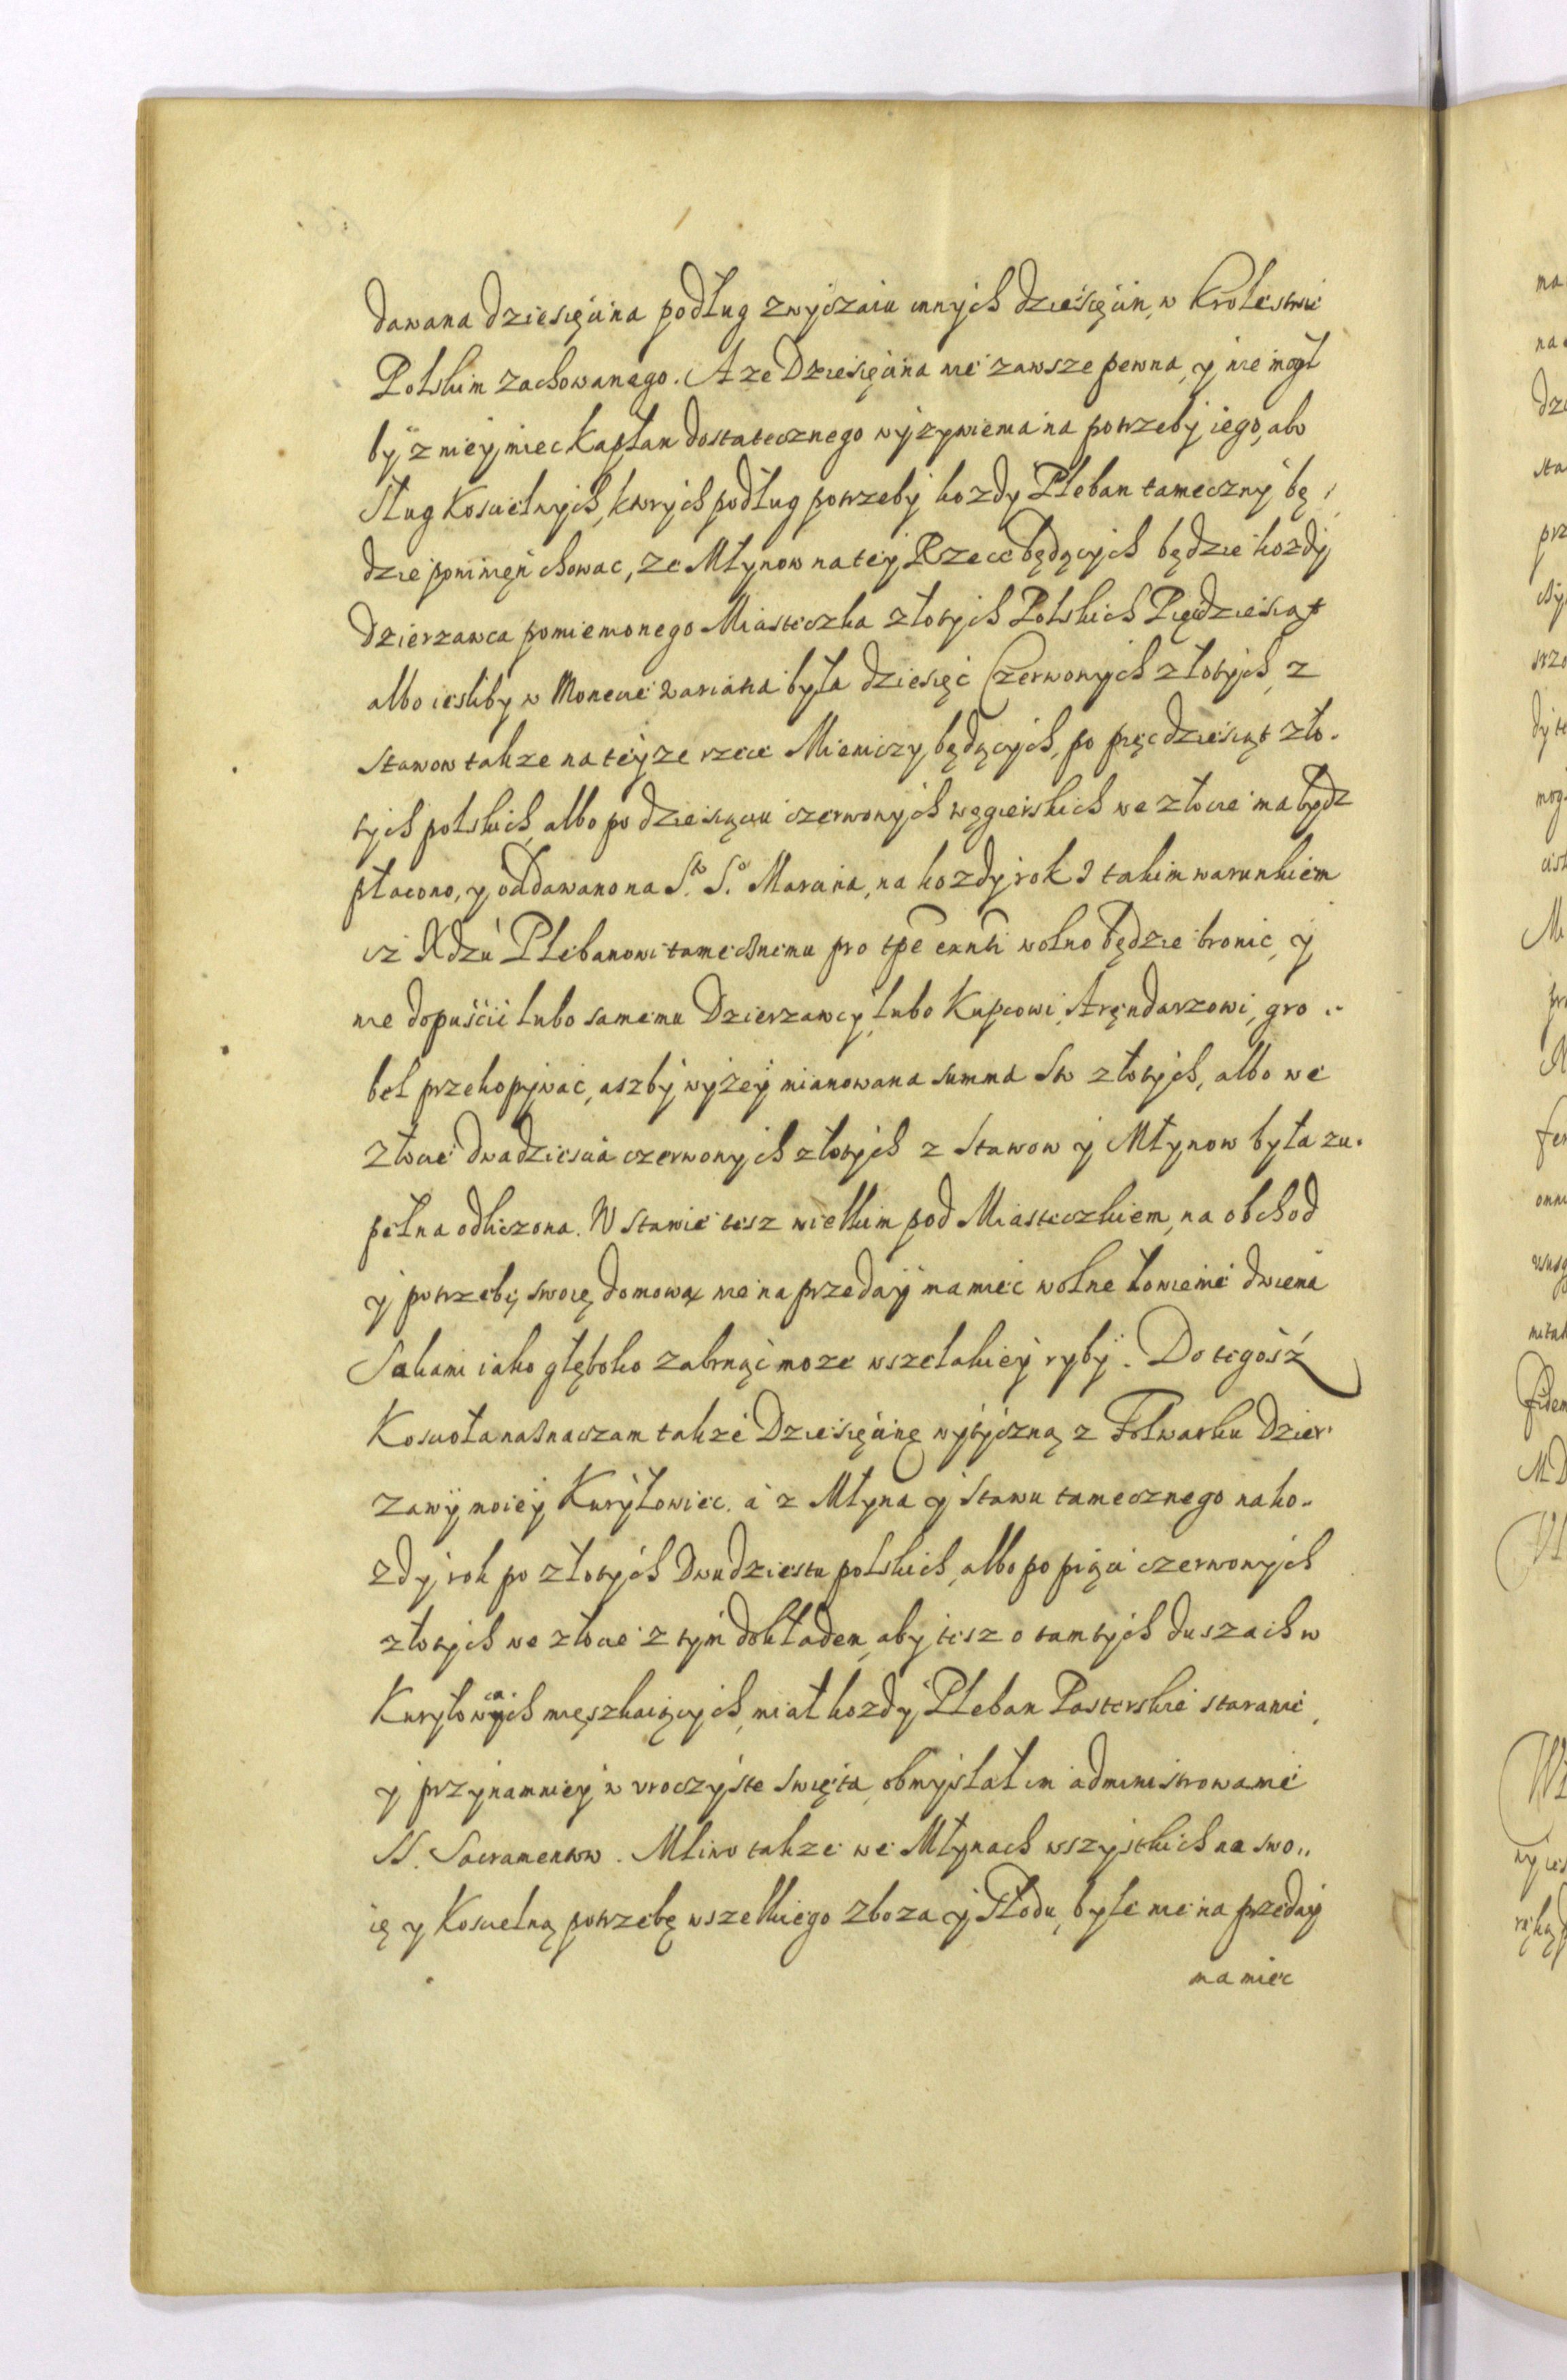 dawana dziesięcina podług zwyczaiu innych dziesięcin, w Krolestwie
Polskim zachowanego. A ze Dziesięcina nie zawsze pewna, y nie mogł
by z niey miec Kapłan dostatecznego wyzywienia na potrzeby iego, abo
Sług Koscielnych, ktorych podług potrzeby kozdy Pleban tameczny bę
dzie powinięn chowac, ze Młynow na tey Rzece będących będzie kozdy
Dzierzawca pomienionego Miasteczka złotych Polskich Pięcdziesiąt
albo iesliby w Monecie wariatia była dziesięc Czerwonych złotych, z
Stawow takze na teyze rzece Mieniczy będących, po pięcdziesiąt zło-
tych polskich, albo po dziesiąciu czerwonych węgierskich we złocie ma bydz
płacono, y oddawano na S.to S.o Marcina, na kozdy rok z takim warunkiem
isz Xdzu Plebanowi tamecznemu pro tpe exnti wolno będzie bronic, y
nie dopuścic lubo samemu Dzierzawcy, lubo Kupcowi, Aręndarzowi, gro
bel przekopywac, aszby wyżey mianowana summa Sto złotych, albo we
złocie dwadziescia czerwonych złotych z Stawow y Młynow była zu-
pełna odliczona. W Stawie tesz wielkim pod Miasteczkiem, na obchod
y potrzebę swoię domową nie na przeday ma miec wolne łowienie dwiema
Sakami iako głęboko zabrnąc moze wszelakiey ryby. Do tegosz
Koscioła naznaczam takze Dziesięcinę wytyczną z Folwarku Dzier
zawy moiey Kuryłowiec. a z Młyna y Stawu tamecznego na ko-
zdy rok po złotych Dwudziestu polskich, albo po piąci czerwonych
złotych we złocie z tym dokładem, aby tesz o tamtych duszach w
Kuryłowcach mięszkaiących, miał kozdy Pleban Pasterskie staranie,
y przynamniey w uroczyste swięta, obmyslał im administrowanie
SS. Sacramentow. Mliwo takze we Młynach wszystkich na swo
ię y Koscielną potrzebę wszelkiego zboza y Słodu, byle nie na przeday
ma miec